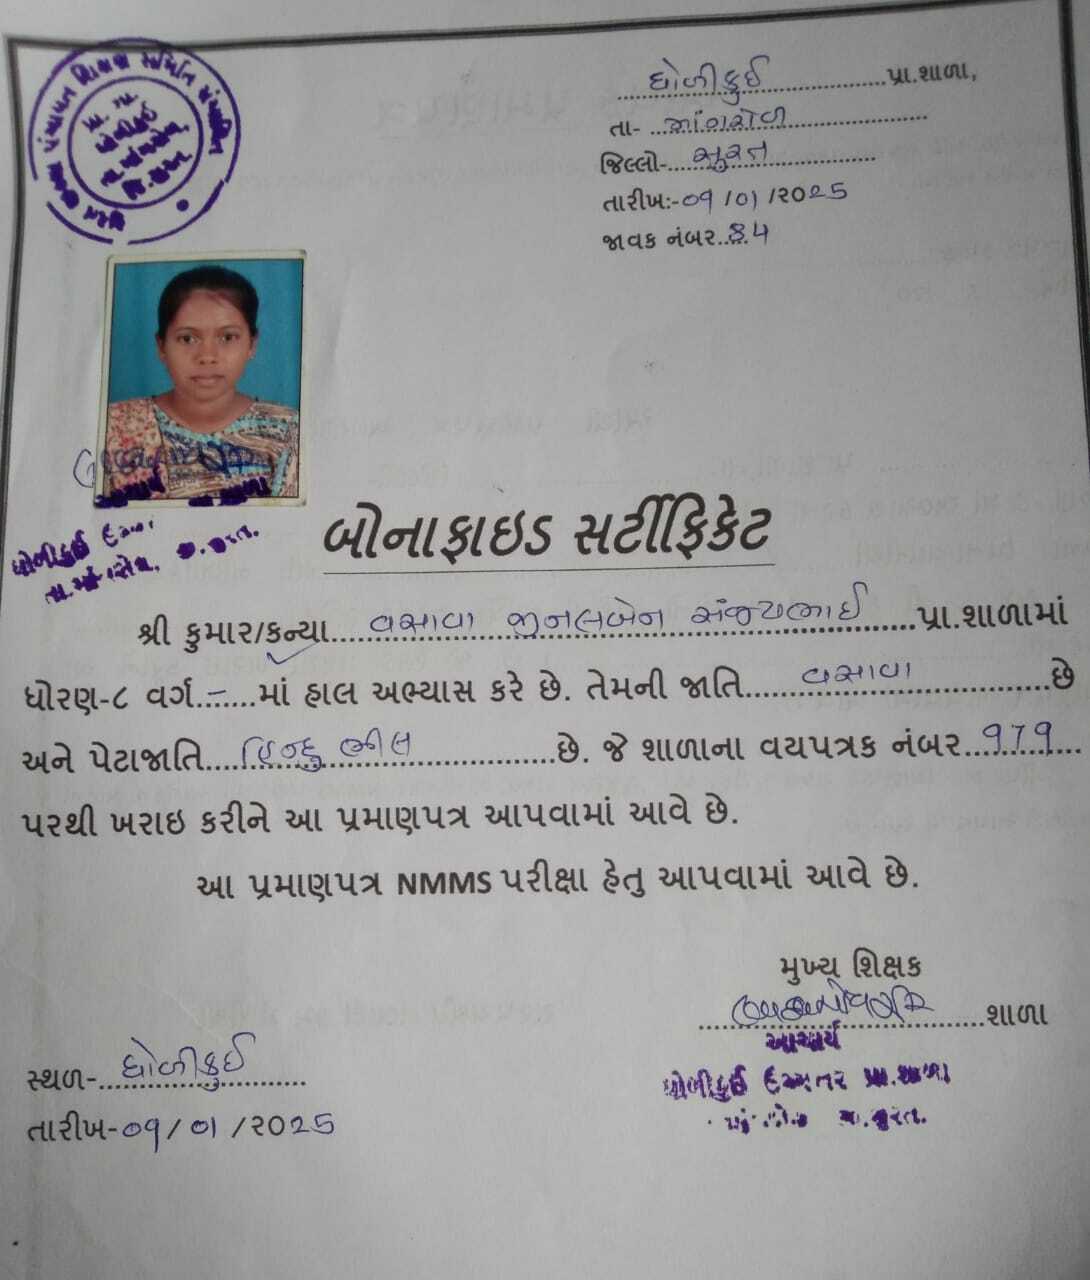 ધોળીકુઈ પ્રા.શાળા,
તા- માંગરોળ
જિલ્લો- સુરત
તારીખ:-09/01/2025
જાવક નંબર..84
બોનાફાઇડ સર્ટીફિકેટ
શ્રી કુમાર/કન્યા.... વસાવા જીનલબેન સંજયભાઈ ....પ્રા.શાળામાં
ધોરણ-૮ વર્ગ..–....માં હાલ અભ્યાસ કરે છે. તેમની જાતિ.... વસાવા ....છે
અને પેટાજાતિ.... હિન્દુ ભીલ ....છે. જે શાળાના વયપત્રક નંબર..979....
પરથી ખરાઇ કરીને આ પ્રમાણપત્ર આપવામાં આવે છે.
આ પ્રમાણપત્ર NMMS પરીક્ષા હેતુ આપવામાં આવે છે.
મુખ્ય શિક્ષક
....શાળા
આચાર્ય
ધોળીકુઈ પ્રા.શાળા
સુરત.
સ્થળ-.. ધોળીકુઈ
તારીખ-09/01/2025